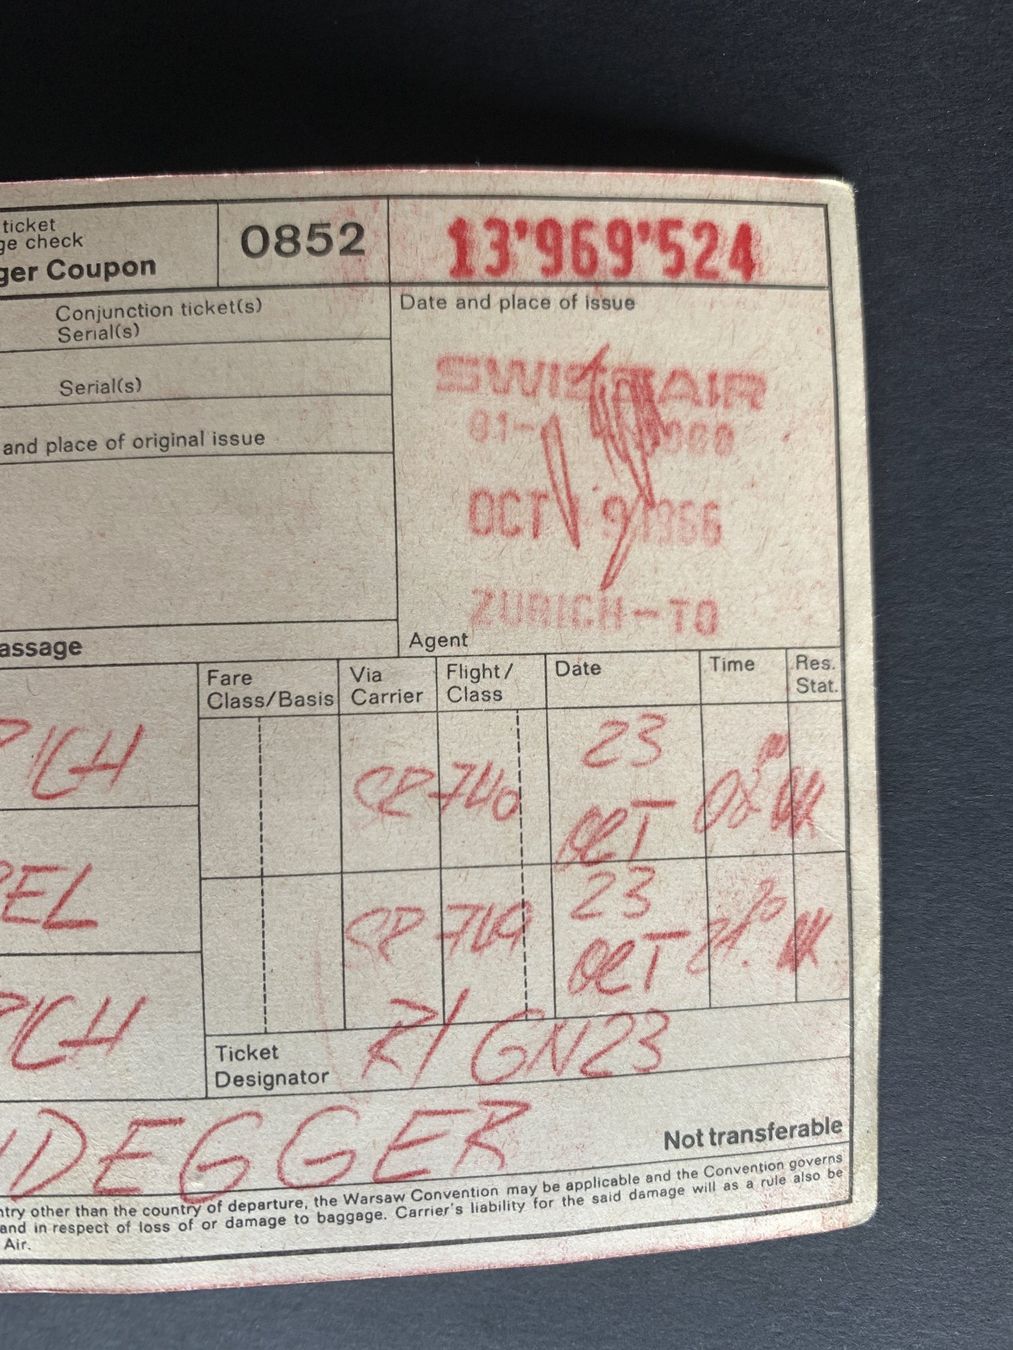 ticket
ge check
ger Coupon
0852
13'969'524
Conjunction ticket(s)
Serial(s)
Serial(s)
and place of original issue
Date and place of issue
SWISSAIR
OCT 19 1966
ZURICH-TO
Agent
assage
Fare Class/Basis
Via Carrier
Flight/ Class
Date
Time
Res. Stat.
RICH
SR 740 23 OCT
SEL
SR 749 23 OCT
RICH
Ticket Designator
R/ GN23
DEGGER
Not transferable
ntry other than the country of departure, the Warsaw Convention may be applicable and the Convention governs
and in respect of loss of or damage to baggage. Carrier's liability for the said damage will as a rule also be
Air.